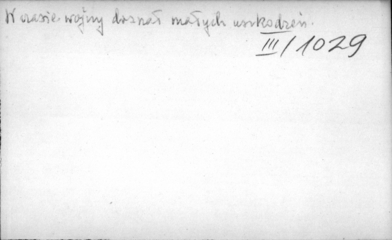 W czasie wojny doznał małych uszkodzeń.
III/1029